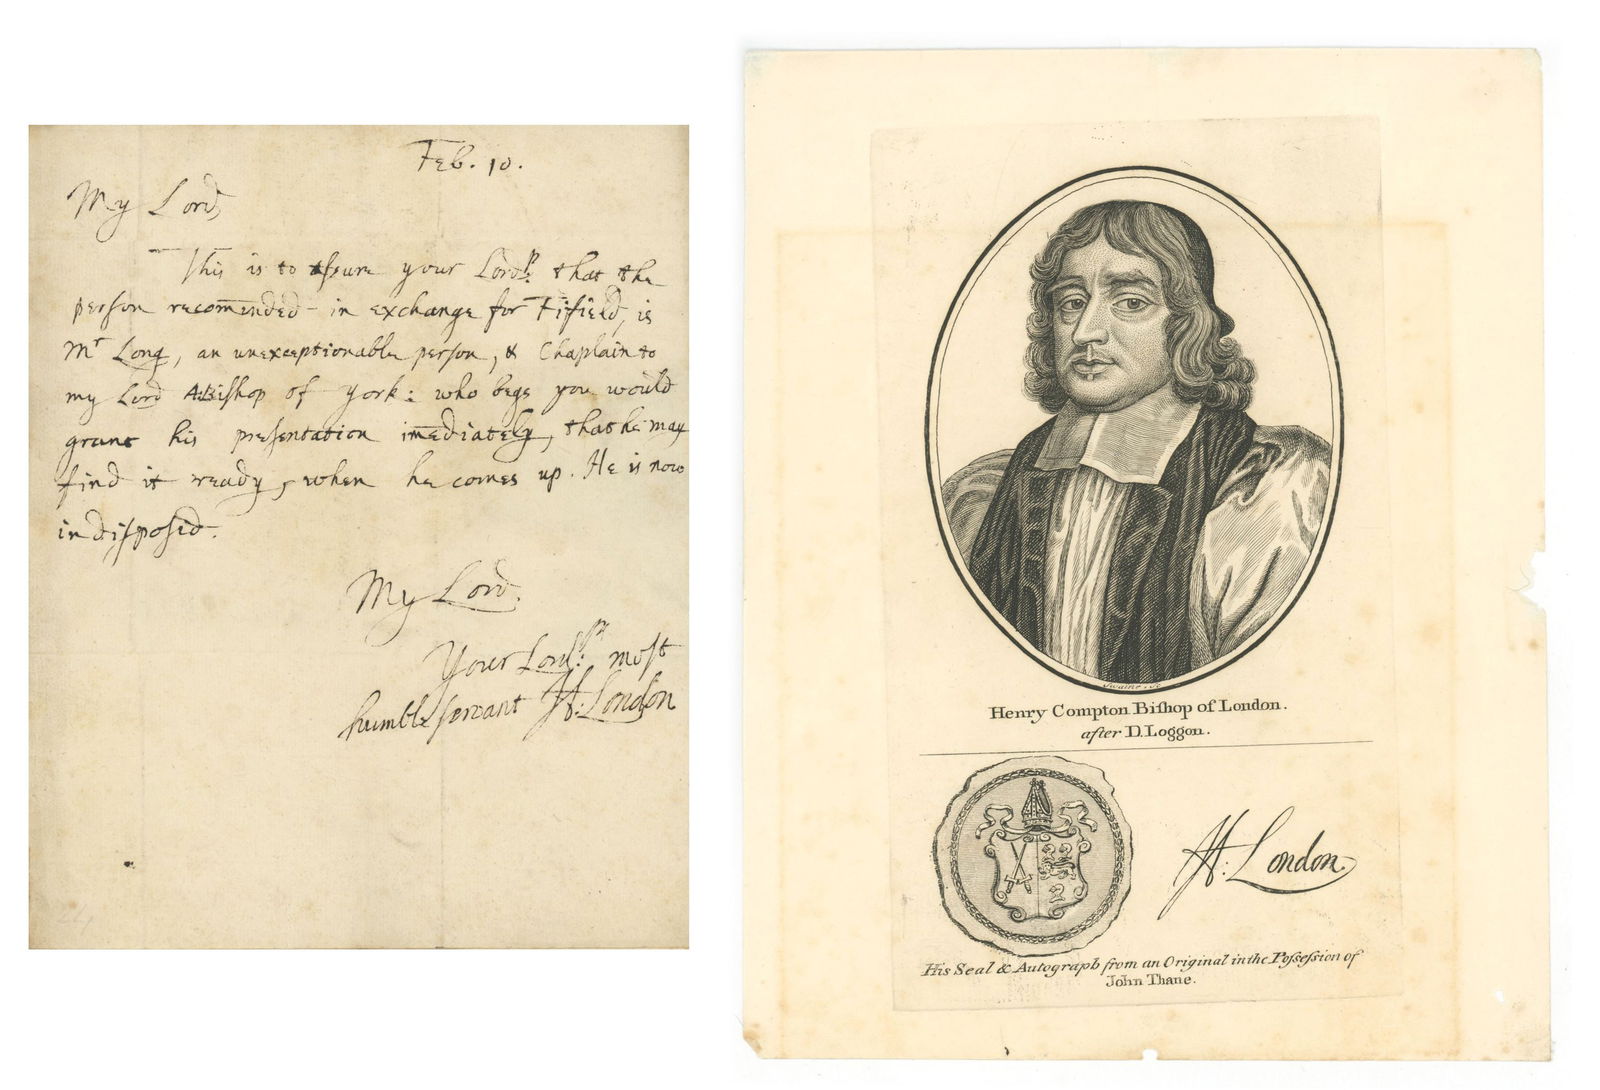 Feb. 10.
My Lord,
This is to assure your Lordsp: that the
person recomended in exchange for Fifield, is
Mr Long, an unexceptionable person, & Chaplain to
my Lord ABishop of York: who begs you would
grant his presentation imediately, that he may
find it ready, when he comes up. He is now
indisposed.
My Lord.
Your Lordsp: most
humble servant H: London
Swaine. Sc
Henry Compton Biſhop of London.
after D. Loggon.
H: London.
His Seal & Autograph from an Original in the Poſseſsion of
John Thane.